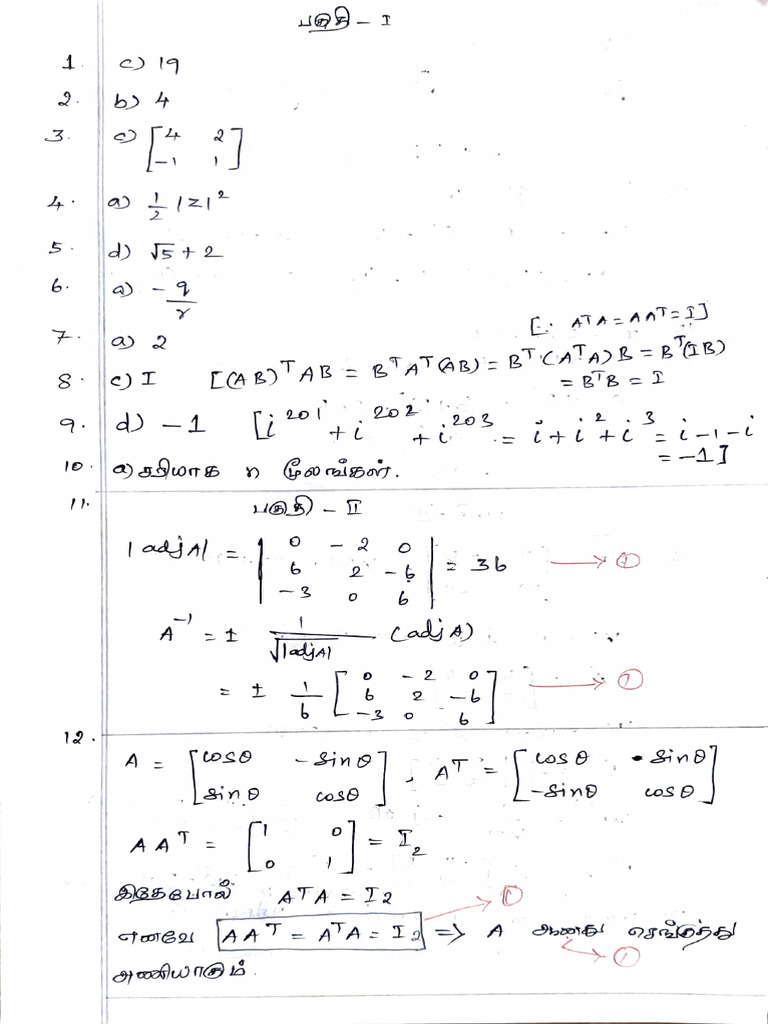 பகுதி - I
1. c) 19
2. b) 4
3. c) [4 2
-1 1]
4. a) 1/2 |z|²
5. d) √5 + 2
6. a) - q/r
7. a) 2 [∵ AᵀA = AAᵀ = I]
8. c) I [(AB)ᵀAB = BᵀAᵀ(AB) = Bᵀ(AᵀA)B = Bᵀ(IB)
= BᵀB = I
9. d) -1 [i²⁰¹ + i²⁰² + i²⁰³ = i + i² + i³ = i - 1 - i
= -1]
10. a) சரியாக n மூலங்கள்.
11. பகுதி - II
|adj A| = | 0 -2 0
6 2 -6
-3 0 6 | = 36 → ①
A⁻¹ = ± 1/√|adjA| (adj A)
= ± 1/6 [ 0 -2 0
6 2 -6
-3 0 6 ] → ①
12.
A = [cosθ -sinθ
sinθ cosθ], Aᵀ = [cosθ sinθ
-sinθ cosθ]
AAᵀ = [1 0
0 1] = I₂
இதேபோல் AᵀA = I₂ ①
எனவே AAᵀ = AᵀA = I₂ => A ஆனது செங்குத்து
அணியாகும். ①